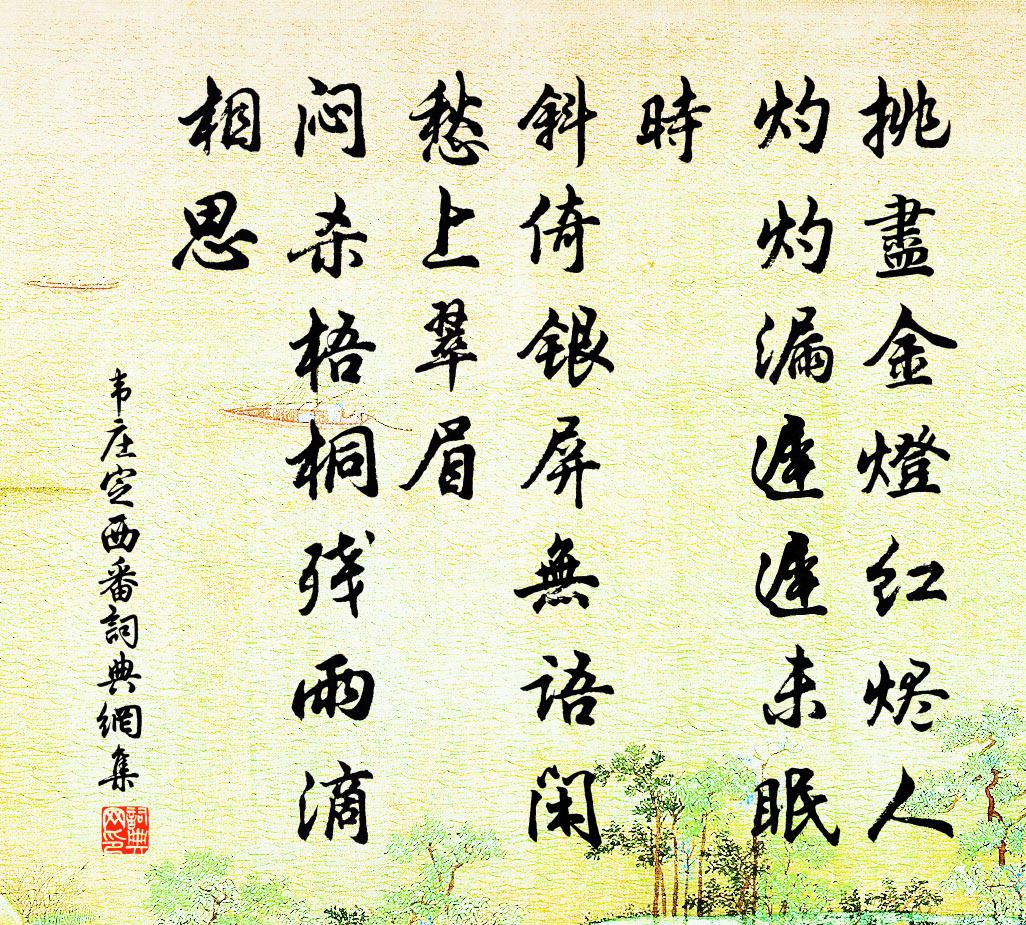 挑盡金燈紅烬人
灼灼漏遲遲未眠
時
斜倚銀屏無語闲
愁上翠眉
闷杀梧桐残雨滴
相思
韦庄定西番詞典網集
詞典网印